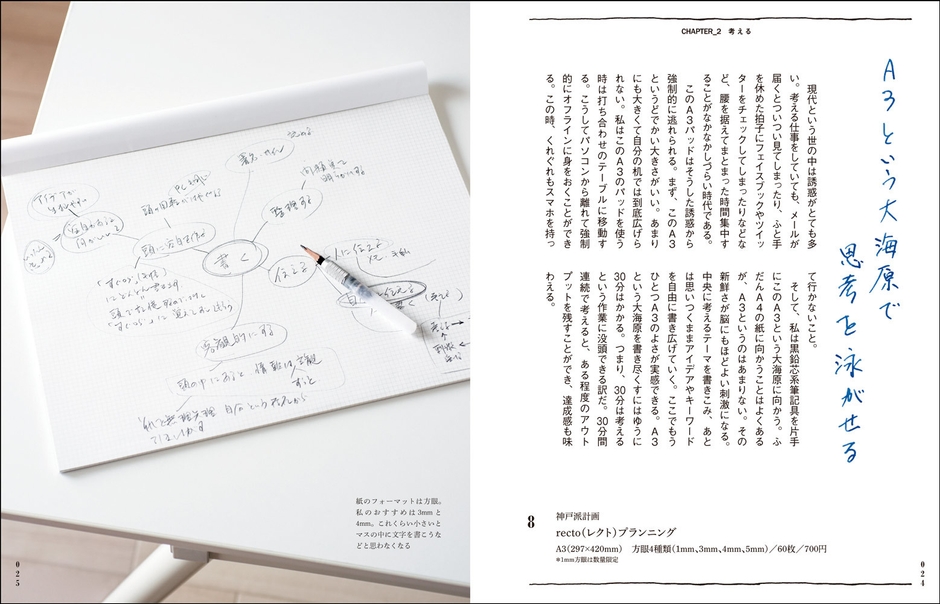 CHAPTER_2 考える
A3という大海原で
思考を泳がせる
現代という世の中は誘惑がとても多
い。考える仕事をしていても、メールが
届くとついつい見てしまったり、ふと手
を休めた拍子にフェイスブックやツイッ
ターをチェックしてしまったりなどな
ど、腰を据えてまとまった時間集中す
ることがなかなかしづらい時代である。
このA3パッドはそうした誘惑から
強制的に逃れられる。まず、このA3
というどでかい大きさがいい。あまり
にも大きくて自分の机では到底広げら
れない。私はこのA3のパッドを使う
時は打ち合わせのテーブルに移動す
る。こうしてパソコンから離れて強制
的にオフラインに身をおくことができ
る。この時、くれぐれもスマホを持っ
て行かないこと。
そして、私は黒鉛芯系筆記具を片手
にこのA3という大海原に向かう。ふ
だんA4の紙に向かうことはよくある
が、A3というのはあまりない。その
新鮮さが脳にもほどよい刺激になる。
中央に考えるテーマを書きこみ、あと
は思いつくままアイデアやキーワード
を自由に書き広げていく。ここでもう
ひとつA3のよさが実感できる。A3
という大海原を書き尽くすにはゆうに
30分はかかる。つまり、30分は考える
という作業に没頭できる訳だ。30分間
連続で考えると、ある程度のアウト
プットを残すことができ、達成感も味
わえる。
8
神戸派計画
recto(レクト)プランニング
A3(297×420mm) 方眼4種類(1mm、3mm、4mm、5mm)/60枚/700円
*1mm方眼は数量限定
024
書く
整理する
伝える
客観的にする
紙のフォーマットは方眼。
私のおすすめは3mmと
4mm。これくらい小さいと
マスの中に文字を書こうな
どと思わなくなる
025